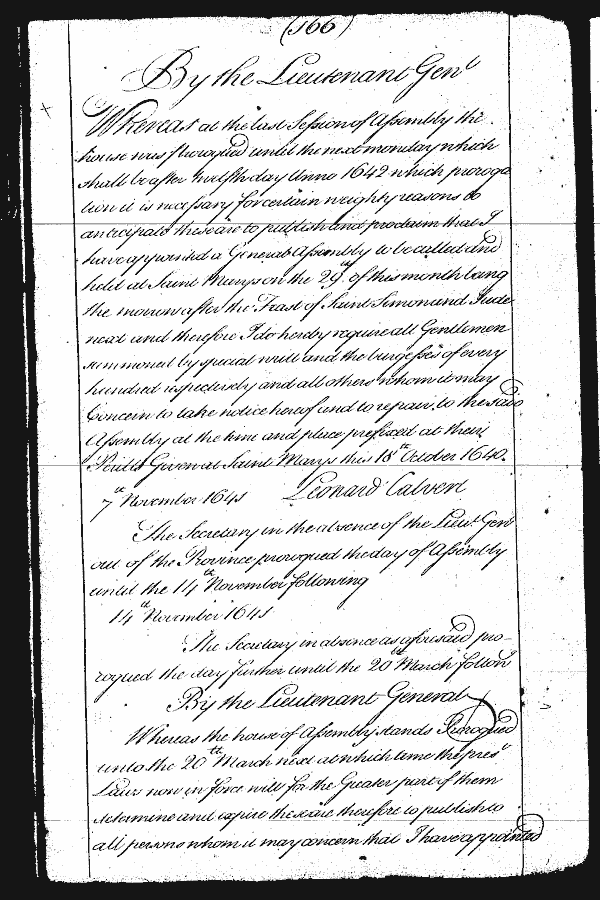 (166)
By the Lieutenant Genl
Whereas at the last Session of Assembly the
house was prorogued until the next monday which
shall be after twelfth day Anno 1642 which proroga
tion it is necessary for certain weighty reasons to
anticipate these are to publish and proclaim that I
have appointed a General Assembly to be called and
held at Saint Marys on the 29th of this month being
the morrow after the Feast of Saint Simon and Jude
next and therefore I do hereby require all Gentlemen
summoned by special writt and the burgesses of every
hundred respectively and all others whom it may
Concern to take notice hereof and to repair to the said
Assembly at the time and place prefixed at their
Perills Given at Saint Marys this 18th October 1640.
7th November 1641 Leonard Calvert
The Secretary in the absence of the Lieut Genl
out of the Province prorogued the day of Assembly
until the 14th November following
14th November 1641
The Secretary in absence as aforesaid pro-
rogued the day further until the 20th March follow
By the Lieutenant General
Whereas the house of Assembly stands Prorogued
unto the 20th March next at which time the prest
Laws now in force will for the Greater part of them
determine and expire these are therefore to publish to
all persons whom it may concern that I have appointed